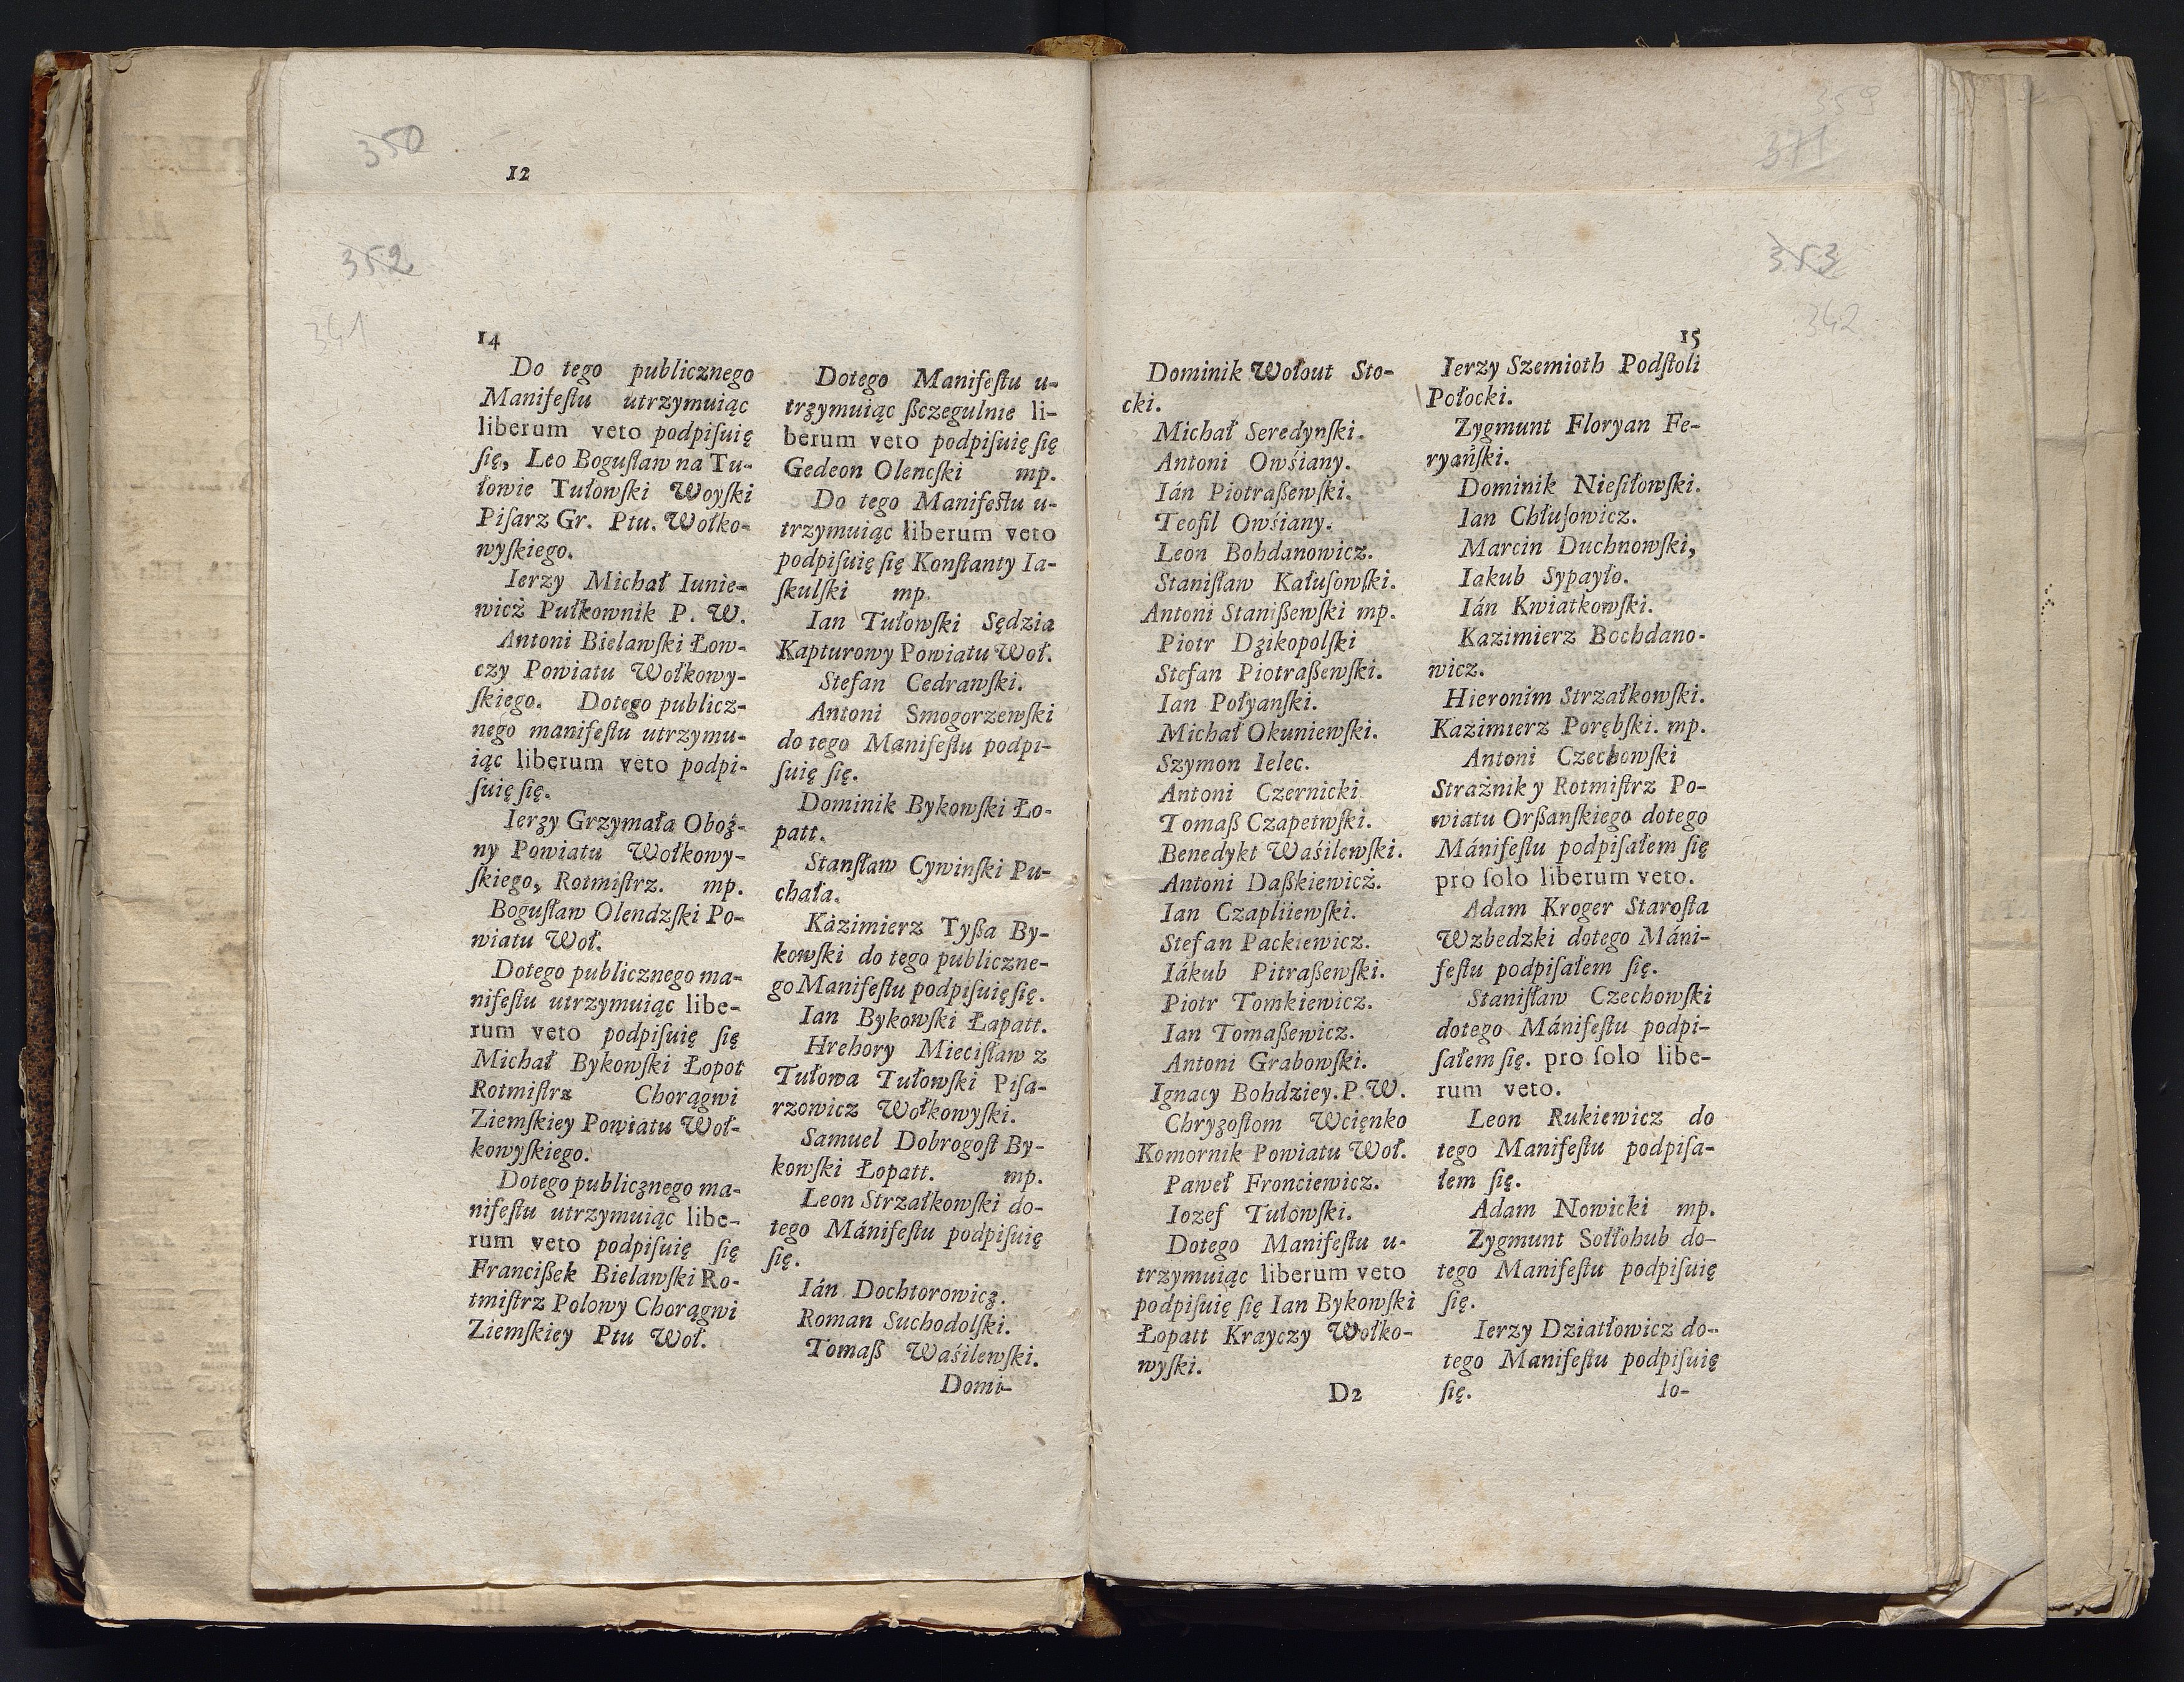 350
12
352
341
14
Do tego publicznego
Manifeſtu utrzymuiąc
liberum veto podpiſuię
ſię, Leo Boguſław na Tu-
łowie Tułowſki Woyſki
Piſarz Gr. Ptu. Wołko-
wyſkiego.
Ierzy Michał Iunie-
wicż Pułkownik P. W.
Antoni Bielawſki Łow-
czy Powiatu Wołkowy-
ſkiego. Dotego publicz-
nego manifeſtu utrzymu-
iąc liberum veto podpi-
ſuię ſię.
Ierzy Grzymała Oboź-
ny Powiatu Wołkowy-
ſkiego, Rotmiſtrz. mp.
Boguſław Olendzſki Po-
wiatu Woł.
Dotego publicznego ma-
nifeſtu utrzymuiąc libe-
rum veto podpiſuię ſię
Michał Bykowſki Łopot
Rotmiſtrz Chorągwi
Ziemſkiey Powiatu Woł-
kowyſkiego.
Dotego publicznego ma-
nifeſtu utrzymuiąc libe-
rum veto podpiſuię ſię
Francißek Bielawſki Ro-
tmiſtrz Polowy Chorągwi
Ziemſkiey Ptu Woł.
Dotego Manifeſtu u-
trzymuiąc ßczegulnie li-
berum veto podpiſuię ſię
Gedeon Olencſki mp.
Do tego Manifeſtu u-
trzymuiąc liberum veto
podpiſuię ſię Konſtanty Ia-
ſkulſki mp.
Ian Tułowſki Sędzia
Kapturowy Powiatu Woł.
Stefan Cedrawſki.
Antoni Smogorzewſki
do tego Manifeſtu podpi-
ſuię ſię.
Dominik Bykowſki Ło-
patt.
Stanſław Cywinſki Pu-
chała.
Kàzimierz Tyßa By-
kowſki do tego publiczne-
go Manifeſtu podpiſuię ſię.
Ian Bykowſki Łapatt.
Hrehory Miecisław z
Tułowa Tułowſki Piſa-
rzowicz Wołkowyſki.
Samuel Dobrogoſt By-
kowſki Łopatt. mp.
Leon Strzałkowſki do-
tego Mánifeſtu podpiſuię
ſię.
Ián Dochtorowicz.
Roman Suchodolſki.
Tomaß Waśilewſki.
Domi-
359
371
353
342
15
Dominik Wołout Sto-
cki.
Michał Seredynſki.
Antoni Owśiany.
Ián Piotraßewſki.
Teofil Owśiany.
Leon Bohdanowicz.
Staniſław Kałuſowſki.
Antoni Stanißewſki mp.
Piotr Dzikopolſki
Stefan Piotraßewſki.
Ian Połyanſki.
Michał Okuniewſki.
Szymon Ielec.
Antoni Czernicki
Tomaß Czapetwſki.
Benedykt Waśilewſki.
Antoni Daßkiewicż.
Ian Czapliiewſki.
Stefan Packiewicz.
Iákub Pitraßewſki.
Piotr Tomkiewicz.
Ian Tomaßewicz.
Antoni Grabowſki.
Ignacy Bohdziey. P. W.
Chryzoſtom Wcięnko
Komornik Powiatu Woł.
Paweł Fronciewicz.
Iozef Tułowſki.
Dotego Manifeſtu u-
trzymuiąc liberum veto
podpiſuię ſię Ian Bykowſki
Łopatt Krayczy Wołko-
wyſki.
D2
Ierzy Szemioth Podſtoli
Połocki.
Zygmunt Floryan Fe-
ryańſki.
Dominik Nieſiłowſki.
Ian Chłuſowicz.
Marcin Duchnowſki,
Iakub Sypayło.
Ián Kwiatkowſki.
Kazimierz Bochdano-
wicz.
Hieronim Strzałkowſki.
Kazimierz Porębſki. mp.
Antoni Czechowſki
Strażnik y Rotmiſtrz Po-
wiatu Orßanſkiego dotego
Mánifeſtu podpiſałem ſię
pro ſolo liberum veto.
Adam Kroger Staroſta
Wzbedzki dotego Máni-
feſtu podpiſałem ſię.
Staniſław Czechowſki
dotego Mánifeſtu podpi-
ſałem ſię. pro ſolo libe-
rum veto.
Leon Rukiewicz do
tego Manifeſtu podpiſa-
łem ſię.
Adam Nowicki mp.
Zygmunt Sołłohub do-
tego Manifeſtu podpiſuię
ſię.
Ierzy Dziatłowicz do-
tego Manifeſtu podpiſuię
ſię. Io-